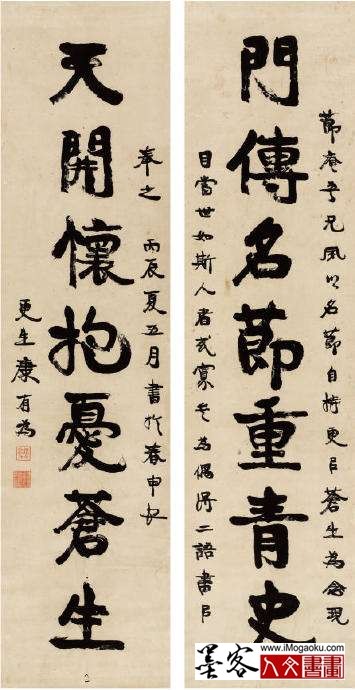 門傳名節重青史
節菴吾兄夙以名節自持更以蒼生為念
目當世如斯人者或寡矣為偶得二語書以
天開懷抱憂蒼生
奉之 丙辰夏五月書於春申江
更生康有為
2
www.iMogaoku.com
墨客
人文書畫
www.iMogaoku.com